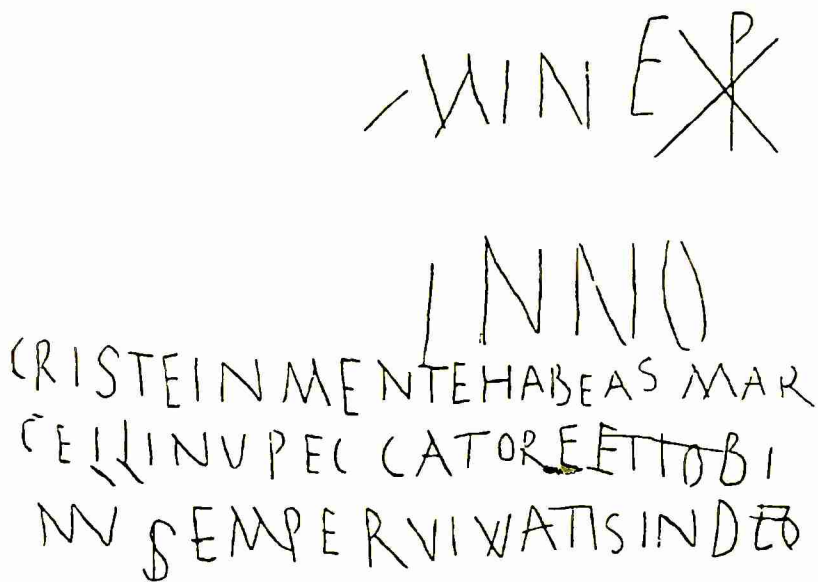 MINE ☧
INNO
CRISTEINMENTEHABEAS MAR
CELLINUPECCATOREETIOBI
NU SEMPERVIVATISINDEO